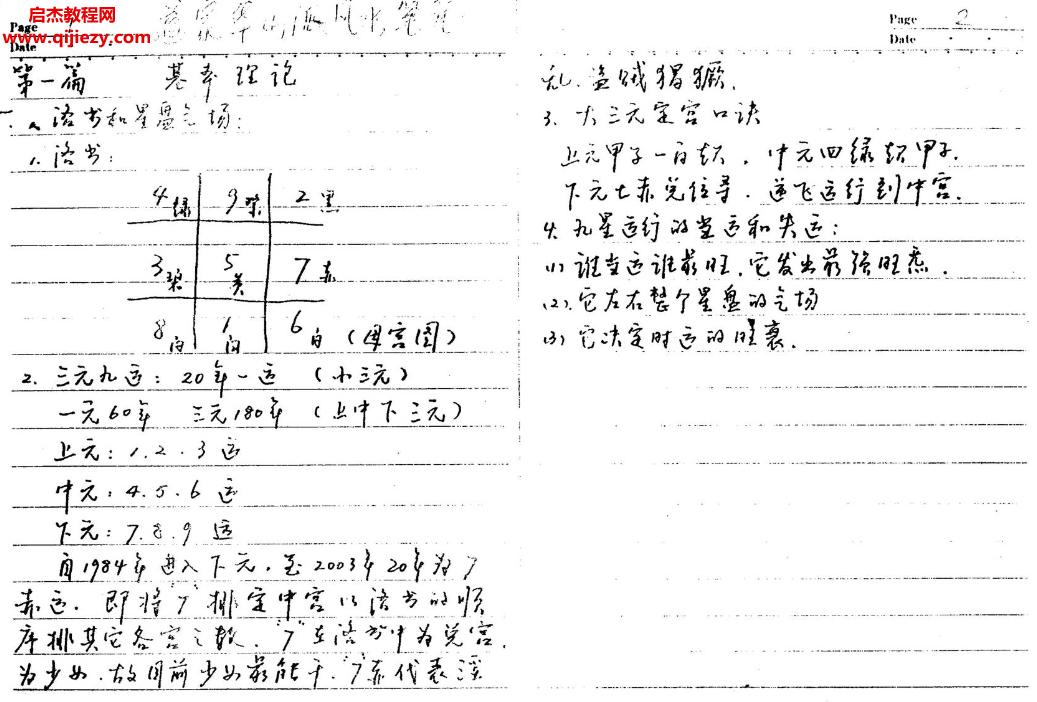 启杰教程网
www.qijiezy.com
Page 1
Date
第一篇 基本理论
一、洛书和星盘气场:
1. 洛书:
4绿 9紫 2黑
3碧 5黄 7赤
8白 1白 6白 (母宫图)
2. 三元九运: 20年一运 (小三元)
一元60年 三元180年 (上中下三元)
上元: 1. 2. 3 运
中元: 4. 5. 6 运
下元: 7. 8. 9 运
自1984年进入下元. 至2003年20年为7
赤运. 即将"7"排定中宫以洛书的顺
序排其它各宫之数. "7"在洛书中为兑宫
为少女. 故目前少女最能干. "7"赤代表淫
Page 2
Date
乱. 盗贼猖獗.
3. 大三元定宫口诀
上元甲子一白起, 中元四绿起甲子.
下元七赤兑位寻. 逆飞运行到中宫.
4. 九星运行的当运和失运:
(1) 谁当运谁最旺. 它发出最强旺炁.
(2). 它左右整个星盘的气场
(3) 它决定时运的旺衰.